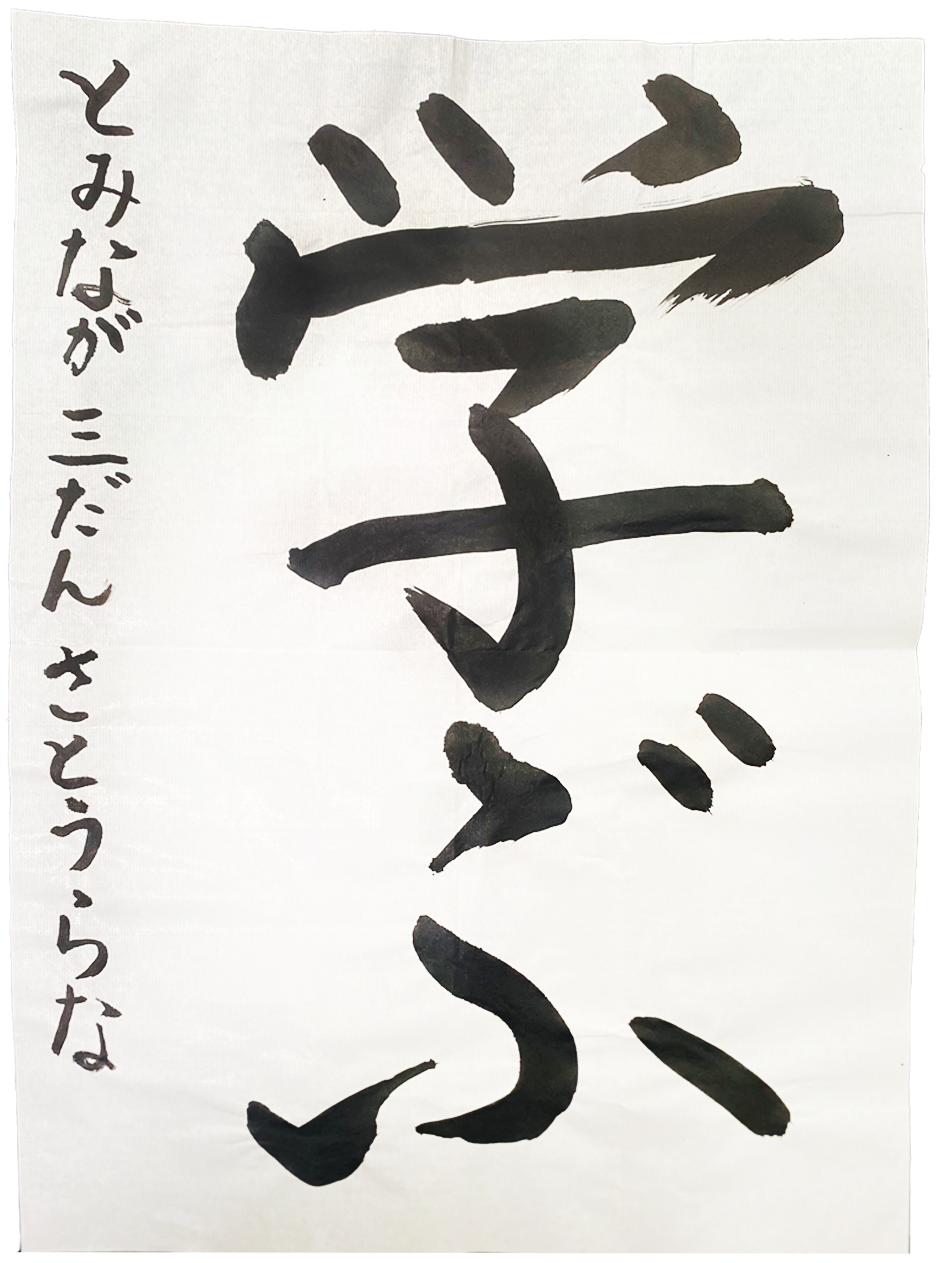 学ぶ
とみなが 三だん さとうらな